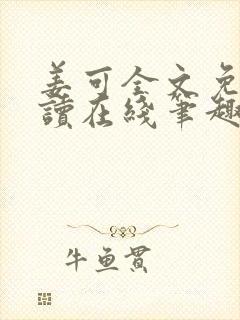 姜可全文免
读在线笔趣
牛鱼贯